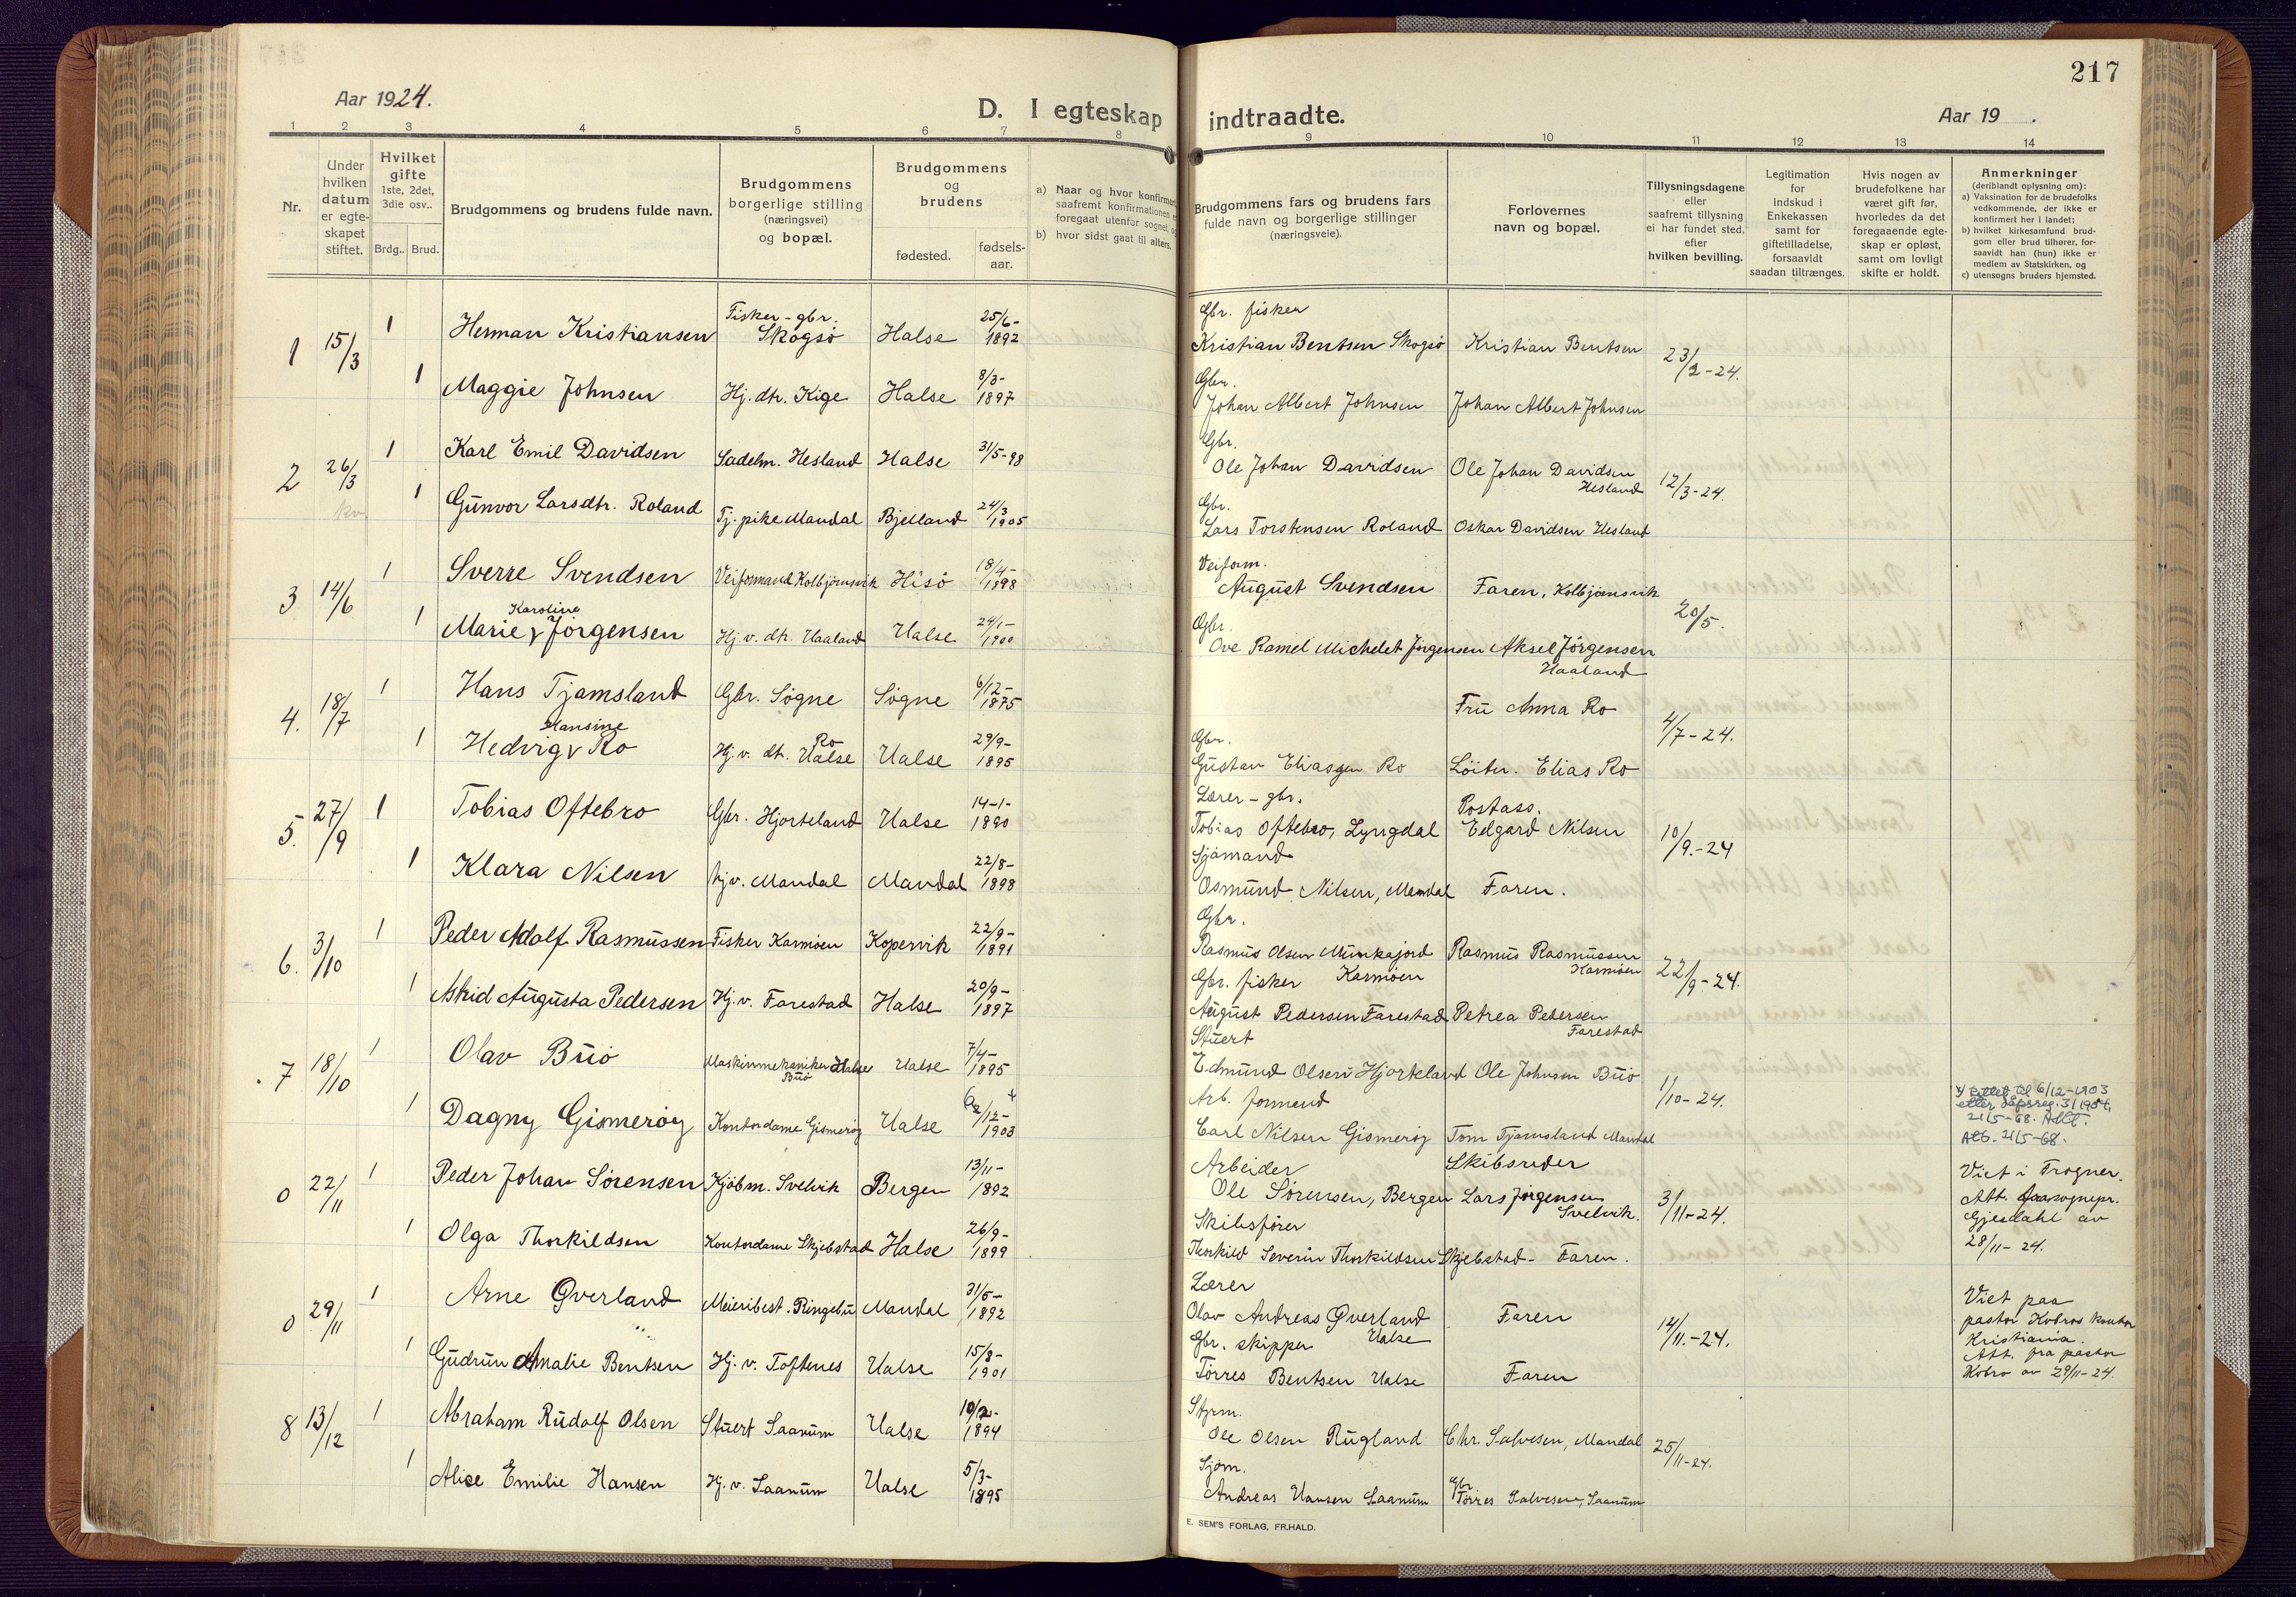 217
Aar 1924.
D. I egteskap indtraadte.
Aar 19 .
1 2 3 4 5 6 7 8 9 10 11 12 13 14
Nr.
Under hvilken datum er egte-skapet stiftet.
Hvilket gifte 1ste, 2det, 3die osv..
Brdg.. Brud.
Brudgommens og brudens fulde navn.
Brudgommens borgerlige stilling (næringsvei) og bopæl.
Brudgommens og brudens
fødested.
fødsels-aar.
a) Naar og hvor konfirmert
saafremt konfirmationen
foregaat utenfor sognet,
b) hvor sidst gaat til alters.
Brudgommens fars og brudens fars
fulde navn og borgerlige stillinger
(næringsveie).
Forlovernes
navn og bopæl.
Tillysningsdagene
eller
saafremt tillysning
ei har fundet sted,
efter
hvilken bevilling.
Legitimation
for
indskud i
Enkekassen
samt for
giftetilladelse,
forsaavidt
saadan tiltrænges.
Hvis nogen av
brudefolkene har
været gift før,
hvorledes da det
foregaaende egte-
skap er opløst,
samt om lovligt
skifte er holdt.
Anmerkninger
(deriblandt oplysning om):
a) Vaksination for de brudefolks
vedkommende, der ikke er
konfirmert her i landet;
b) hvilket kirkesamfund brud-
gom eller brud tilhører, for-
saavidt han (hun) ikke er
medlem av Statskirken, og
c) utensogns bruders hjemsted.
1 15/3 1 Herman Kristiansen Fisker - gbr. Skogsö Halse 25/6-1892 Gbr. fisker Kristian Bentsen Skogsö Kristian Bentsen 23/2-24.
1 Maggie Johnsen Hj. dtr. Kige Halse 8/3-1897 Gbr. Johan Albert Johnsen Johan Albert Johnsen
2 26/3 1 Karl Emil Davidsen Sadelm. Hesland Halse 31/5-98 Gbr. Ole Johan Davidsen Ole Johan Davidsen Hesland 12/3-24.
1 Gunvor Larsdtr. Roland Tj. pike Mandal Bjelland 24/3 1905 Gbr. Lars Torstensen Roland Oskar Davidsen Hesland
3 14/6 1 Sverre Svendsen Veiformand Kolbjørnsvik Hisö 18/4-1898 Veiform. August Svendsen Faren, Kolbjørnsvik 20/5.
1 Marie Karoline Jörgensen Hj. v. dtr. Haaland Halse 24/1-1900 Gbr. Ove Ramel Michelet Jörgensen Aksel Jörgensen Haaland
4. 18/7 1 Hans Tjamsland Gbr. Sögne Sögne 6/12-1875 Fru Anna Ro 4/7-24.
1 Hedvig Hansine Ro Hj. v. dtr. Ro Halse Halse 29/9-1895 Gbr. Gustav Eliassen Ro Löitn. Elias Ro
5. 27/9 1 Tobias Oftebro Gbr. Hjorteland Halse 14-1-1890 Lærer - gbr. Tobias Oftebro, Lyngdal Postass. Edgard Nilsen 10/9.-24
1 Klara Nilsen hj v. Mandal Mandal 22/8-1898 Sjömand Osmund Nilsen, Mandal Faren.
6. 3/10 1 Peder Adolf Rasmussen Fisker Karmöen Kopervik 22/9-1891 Gbr. Rasmus Olsen Munkajord Karmöen Rasmus Rasmussen Karmöen 22/9-24.
1 Astrid Augusta Pedersen Hj. v. Farestad Halse 20/9-1897 Gbr. fisker August Pedersen Farestad Petrea Pedersen Farestad
7 18/10 1 Olav Buö Maskinmekaniker Halse Buö Halse 7/4-1895 Stuert Edmund Olsen Hjorteland Ole Johnsen Buö 1/10-24.
1 Dagny Gismeröy Kontordame Gismeröy Halse /12-1903 Arb. formand Carl Nilsen Gismeröy Tom Tjamsland Mandal
x) Rettet til 6/12-1903
etter dåpsreg. 3/1904,
21/5-68. Att.
Att. 21/5-68.
0 22/11 1 Peder Johan Sörensen Kjöbm. Svelvik Bergen 13/11-1892 Arbeider Ole Sörensen, Bergen Skibsreder Lars Jörgensen Svelvik. 3/11-24.
Viet i Frogner.
Att. fra sognepr.
Gjesdahl av
28/11-24.
1 Olga Thorkildsen Kontordame Skjebstad Halse 26/9-1899 Skibsförer Thorkild Severin Thorkildsen Skjebstad - Faren.
0 29/11 1 Arne Øverland Meieribest. Ringebu Mandal 31/5-1892 Lærer Olav Andreas Øverland Halse Faren 14/11.-24.
Viet paa
pastor Kobros kontor
Kristiania.
Att. fra pastor
Kobro av 29/11-24.
1 Gudrun Amalie Bentsen Hj. v. Toftenes Halse 15/8-1901 Gbr. skipper Törres Bentsen Halse Faren
8 13/12 1 Abraham Rudolf Olsen Stuert Saanum Halse 10/2-1894 Styrm. Ole Olsen Rugland Chr. Salvesen, Mandal 25/11-24.
1 Alice Emilie Hansen Hj. v. Saanum Halse 5/3-1895 Sjöm. Andreas Hansen Saanum Gbr. Törres Salvesen, Saanum
E. SEM'S FORLAG, FR.HALD.